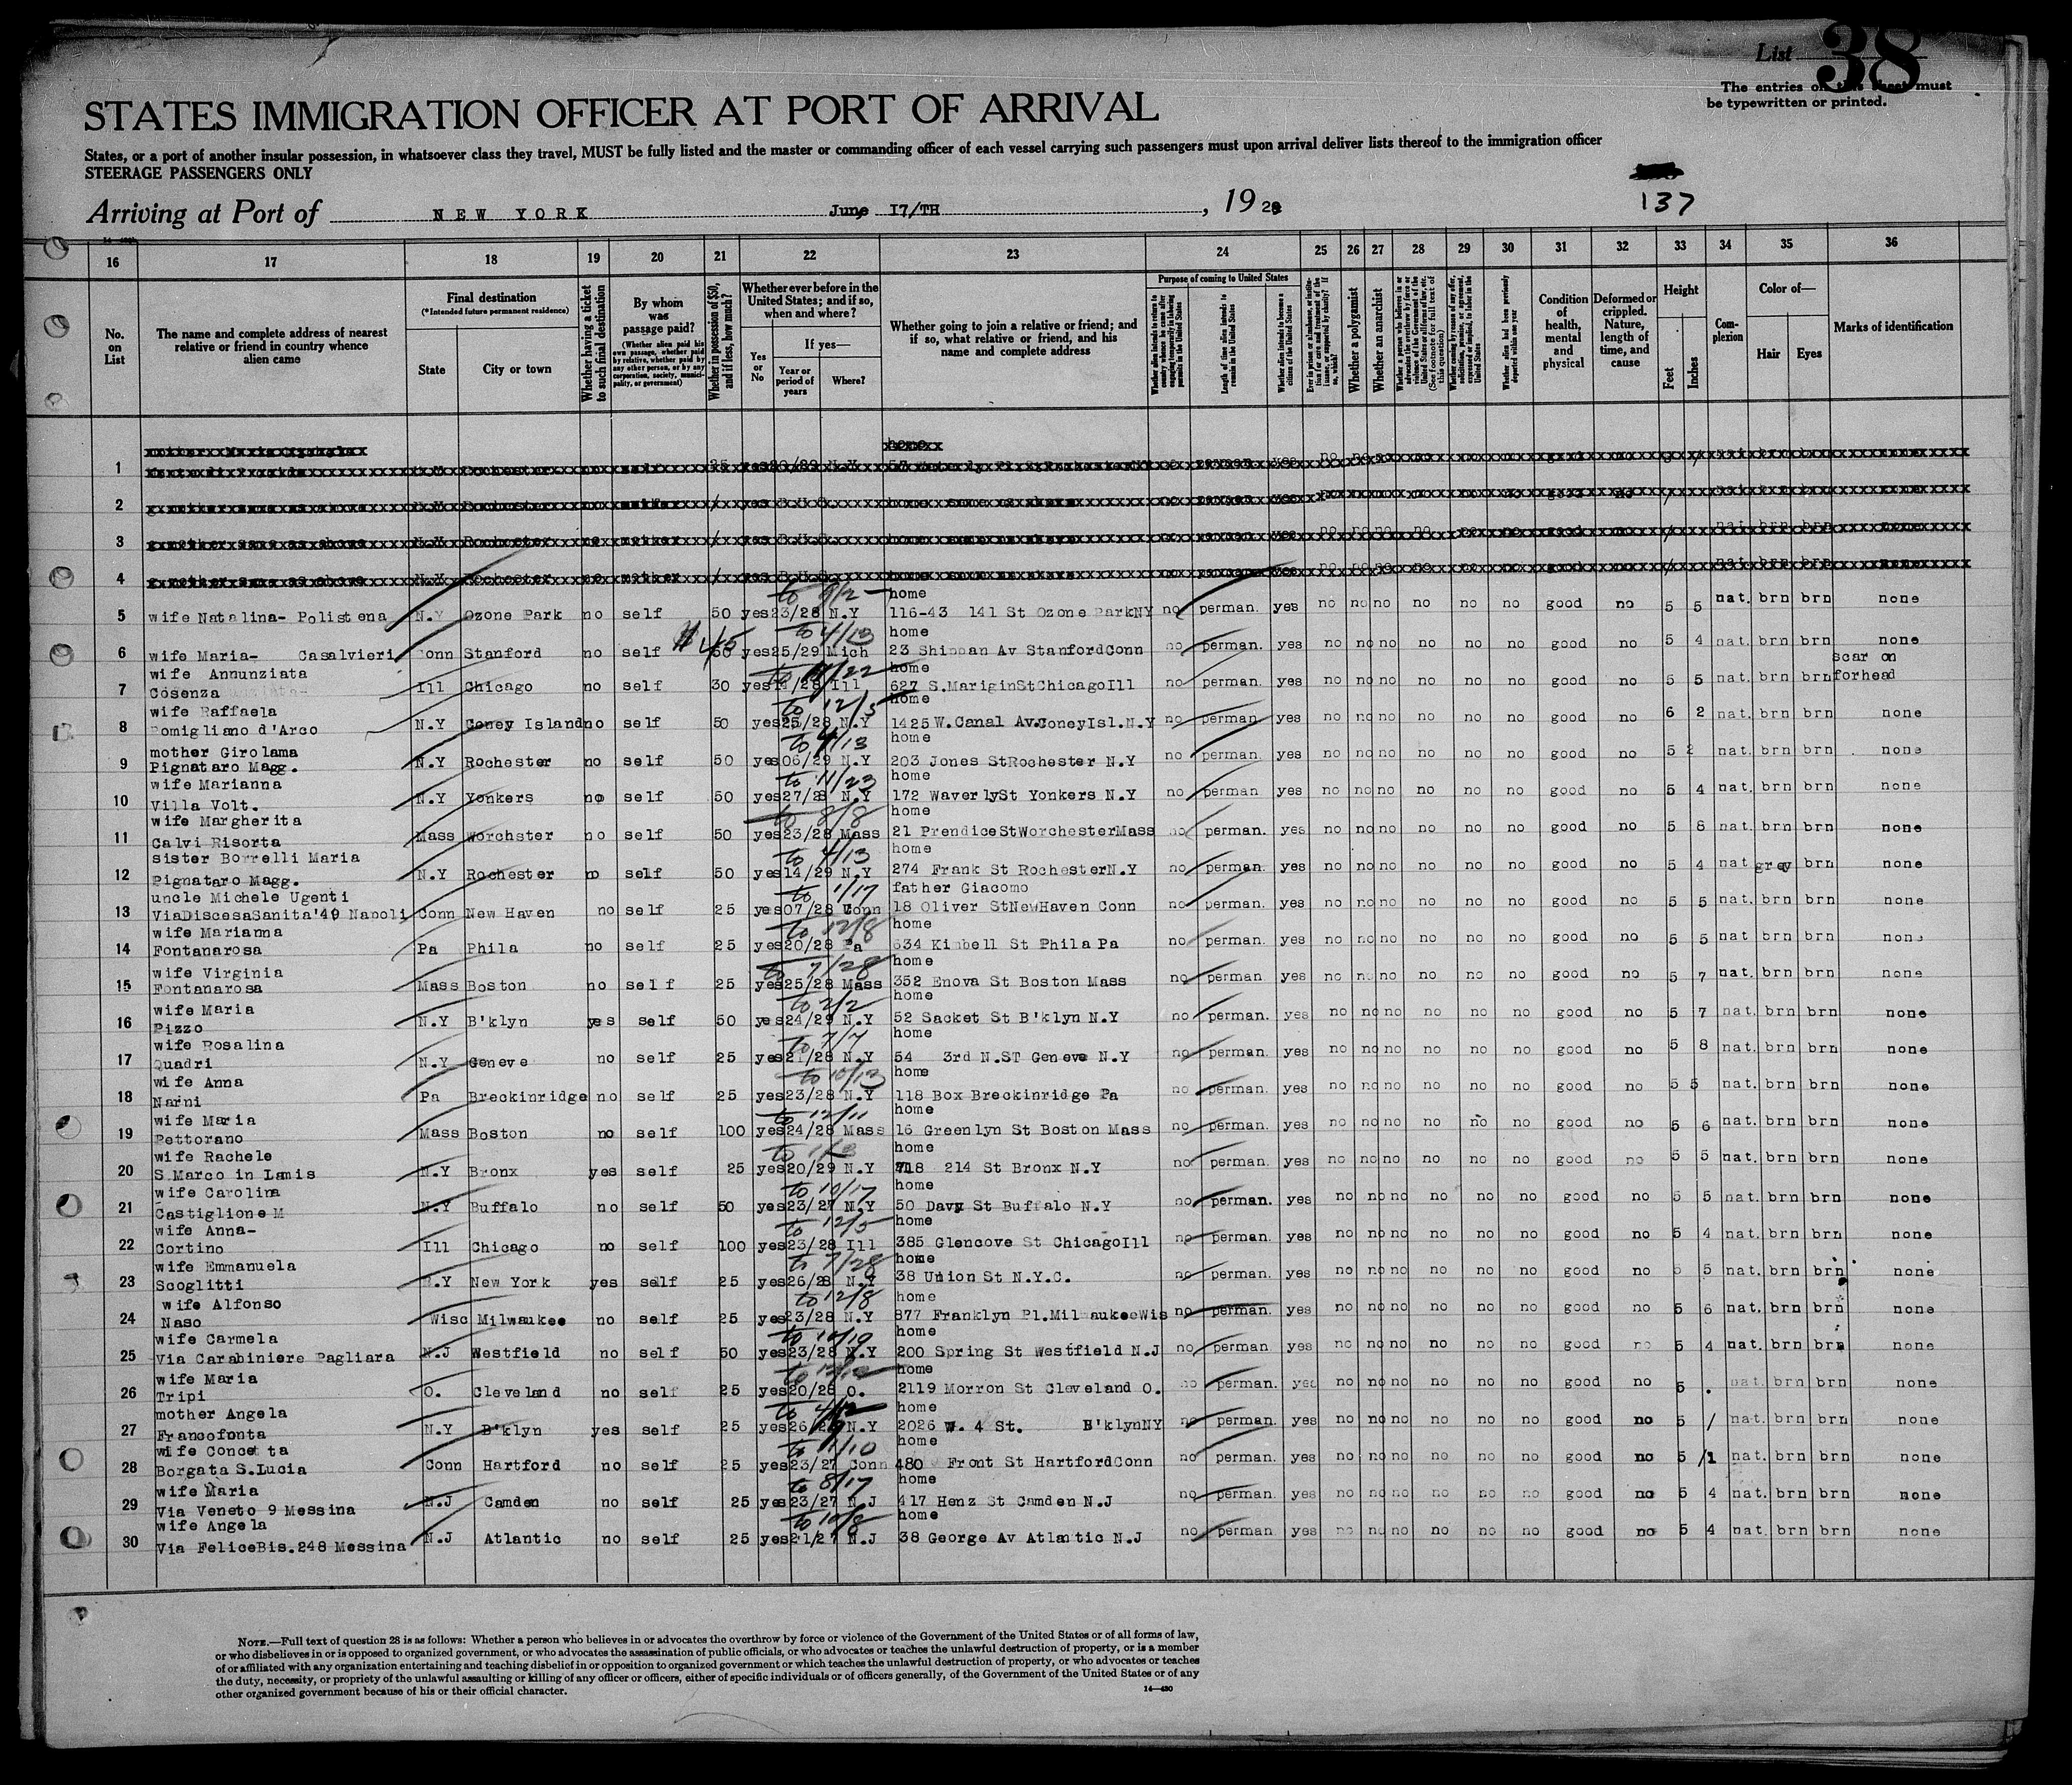 List 38
The entries on this sheet must
be typewritten or printed.
STATES IMMIGRATION OFFICER AT PORT OF ARRIVAL
States, or a port of another insular possession, in whatsoever class they travel, MUST be fully listed and the master or commanding officer of each vessel carrying such passengers must upon arrival deliver lists thereof to the immigration officer
STEERAGE PASSENGERS ONLY
137
Arriving at Port of NEW YORK June 17/TH, 1929
16 17 18 19 20 21 22 23 24 25 26 27 28 29 30 31 32 33 34 35 36
No. on List
The name and complete address of nearest relative or friend in country whence alien came
Final destination
(*Intended future permanent residence)
State
City or town
Whether having a ticket to such final destination
By whom was passage paid?
(Whether alien paid his own passage, whether paid by relative, whether paid by any other person, or by any corporation, society, municipality, or government)
Whether in possession of $50, and if less, how much?
Whether ever before in the United States; and if so, when and where?
Yes or No
If yes—
Year or period of years
Where?
Whether going to join a relative or friend; and if so, what relative or friend, and his name and complete address
Purpose of coming to United States
Whether alien intends to return to country whence he came after engaging temporarily in laboring pursuits in the United States
Length of time alien intends to remain in the United States
Whether alien intends to become a citizen of the United States
Ever in prison or almshouse, or institution for care and treatment of the insane, or supported by charity? If so, which?
Whether a polygamist
Whether an anarchist
Whether a person who believes in or advocates the overthrow by force or violence of the Government of the United States or all forms of law, etc. (See footnote for full text of this question)
Whether coming by reason of any offer, solicitation, promise, or agreement, expressed or implied, to labor in the United States
Whether alien had been previously deported within one year
Condition of health, mental and physical
Deformed or crippled. Nature, length of time, and cause
Height
Feet
Inches
Complexion
Color of—
Hair
Eyes
Marks of identification
1
2
3
4
to 9/2 home
5 wife Natalina- Polistena N.Y Ozone Park no self 50 yes 23/28 N.Y 116-43 141 St Ozone ParkNY no perman. yes no no no no no no good no 5 5 nat. brn brn none
to 4/13 home
6 wife Maria- Casalvieri Conn Stanford no self 50 yes 25/29 Mich 23 Shipoan Av StanfordConn no perman. yes no no no no no no good no 5 4 nat. brn brn none
wife Annunziata home scar on
7 Cosenza Ill Chicago no self 30 yes 14/28 Ill 627 S.MariginStChicagoIll no perman. yes no no no no no no good no 5 5 nat. brn brn forhead
wife Raffaela to 12/5 home
8 Pomigliano d'Arco N.Y Coney Island no self 50 yes 25/28 N.Y 1425 W.Canal Av.ConeyIsl.N.Y no perman yes no no no no no no good no 6 2 nat. brn brn none
mother Girolama to 4/13 home
9 Pignataro Magg. N.Y Rochester no self 50 yes 06/29 N.Y 203 Jones StRochester N.Y no perman yes no no no no no no good no 5 2 nat. brn brn none
wife Marianna to 11/23 home
10 Villa Volt. N.Y Yonkers no self 50 yes 27/28 N.Y 172 WaverlySt Yonkers N.Y no perman yes no no no no no no good no 5 4 nat. brn brn none
wife Margherita to 8/8 home
11 Calvi Risorta Mass Worchster no self 50 yes 23/28 Mass 21 PrendiceStWorchesterMass no perman. yes no no no no no no good no 5 8 nat. brn brn none
sister Borrelli Maria to 4/13 home
12 Pignataro Magg. N.Y Rochester no self 50 yes 14/29 N.Y 274 Frank St RochesterN.Y no perman. yes no no no no no no good no 5 4 nat grey brn none
uncle Michele Ugenti to 1/17 father Giacomo
13 ViaDiscesaSanita'49 Napoli Conn New Haven no self 25 yes 07/28 Conn 18 Oliver StNewHaven Conn no perman. yes no no no no no no good no 5 5 nat. brn brn none
wife Marianna to 12/8 home
14 Fontanarosa Pa Phila no self 25 yes 20/28 Pa 634 Kimbell St Phila Pa no perman. yes no no no no no no good no 5 5 nat brn brn none
wife Virginia to 7/28 home
15 Fontanarosa Mass Boston no self 25 yes 25/28 Mass 352 Enova St Boston Mass no perman yes no no no no no no good no 5 7 nat. brn brn none
wife Maria to 2/2 home
16 Pizzo N.Y B'klyn yes self 50 yes 24/29 N.Y 52 Sacket St B'klyn N.Y no perman. yes no no no no no no good no 5 7 nat. brn brn none
wife Rosalina to 7/7 home
17 Quadri N.Y Geneve no self 25 yes 21/28 N.Y 54 3rd N.ST Geneve N.Y no perman. yes no no no no no no good no 5 8 nat. brn brn none
wife Anna to 10/13 home
18 Narni Pa Breckinridge no self 25 yes 23/28 N.Y 118 Box Breckinridge Pa no perman. yes no no no no no no good no 5 5 nat. brn brn none
wife Maria to 12/11 home
19 Pettorano Mass Boston no self 100 yes 24/28 Mass 16 Greenlyn St Boston Mass no perman. yes no no no no no no good no 5 6 nat. brn brn none
wife Rachele home
20 S.Marco in Lamis N.Y Bronx yes self 25 yes 20/29 N.Y 718 214 St Bronx N.Y no perman. yes no no no no no no good no 5 5 nat. brn brn none
wife Carolina to 10/17 home
21 Castiglione M N.Y Buffalo no self 50 yes 23/27 N.Y 50 Davy St Buffalo N.Y no perman. yes no no no no no no good no 5 5 nat. brn brn none
wife Anna- to 12/5 home
22 Cortino Ill Chicago no self 100 yes 23/28 Ill 385 Glencove St ChicagoIll no perman. yes no no no no no no good no 5 4 nat. brn brn none
wife Emmanuela to 7/28 home
23 Scoglitti N.Y New York yes self 25 yes 26/28 N.Y 38 Union St N.Y.C. no perman. yes no no no no no no good no 5 5 nat. brn brn none
wife Alfonso to 12/8 home
24 Naso Wisc Milwaukee no self 25 yes 23/28 N.Y 877 Franklyn Pl.MilwaukeeWis no perman. yes no no no no no no good no 5 6 nat. brn brn none
wife Carmela home
25 Via Carabiniere Pagliara N.J Westfield no self 50 yes 23/28 N.Y 200 Spring St Westfield N.J no perman. yes no no no no no no good no 5 4 nat. brn brn none
wife Maria home
26 Tripi O. Cleveland no self 25 yes 20/28 O. 2119 Morron St Cleveland O. no perman. yes no no no no no no good no 5 nat. brn brn none
mother Angela home
27 Francofonta N.Y B'klyn yes self 25 yes N.Y 2026 W. 4 St. B'klynNY no perman. yes no no no no no no good no 5 / nat. brn brn none
wife Concetta to 11/10 home
28 Borgata S.Lucia Conn Hartford no self 25 yes 23/27 Conn 480 Front St HartfordConn no perman. yes no no no no no no good no 5 /1 nat. brn brn none
wife Maria to 8/17 home
29 Via Veneto 9 Messina N.J Camden no self 25 yes 23/27 N.J 417 Henz St Camden N.J no perman. yes no no no no no no good no 5 4 nat. brn brn none
wife Angela to 10/8 home
30 Via FeliceBis.248 Messina N.J Atlantic no self 25 yes 21/27 N.J 38 George Av Atlantic N.J no perman. yes no no no no no no good no 5 4 nat. brn brn none
NOTE.—Full text of question 28 is as follows: Whether a person who believes in or advocates the overthrow by force or violence of the Government of the United States or of all forms of law,
or who disbelieves in or is opposed to organized government, or who advocates the assassination of public officials, or who advocates or teaches the unlawful destruction of property, or is a member
of or affiliated with any organization entertaining and teaching disbelief in or opposition to organized government or which teaches the unlawful destruction of property, or who advocates or teaches
the duty, necessity, or propriety of the unlawful assaulting or killing of any officer or officers, either of specific individuals or of officers generally, of the Government of the United States or of any
other organized government because of his or their official character.
14—430